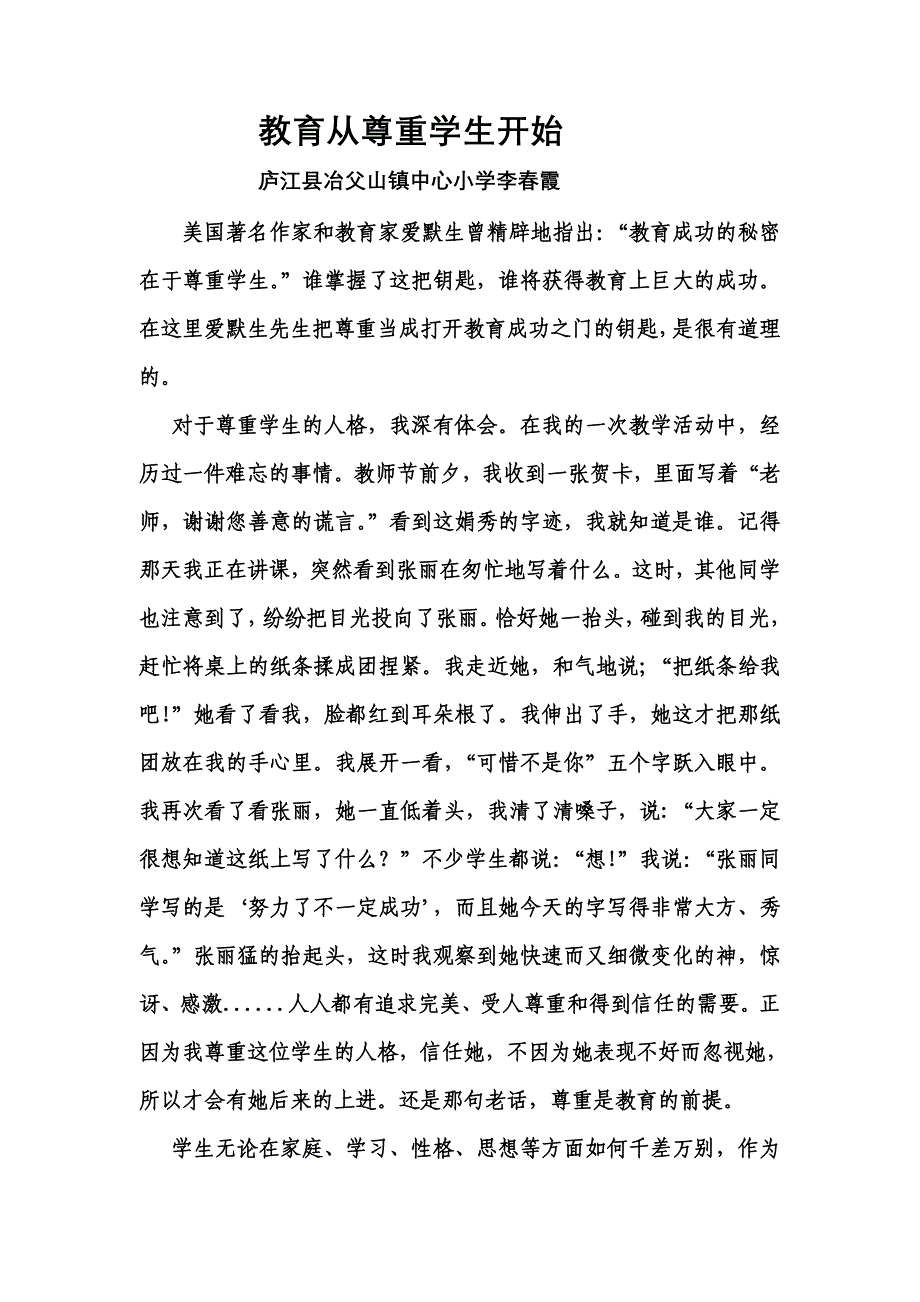 教育从尊重学生开始
庐江县冶父山镇中心小学李春霞
美国著名作家和教育家爱默生曾精辟地指出：“教育成功的秘密
在于尊重学生。”谁掌握了这把钥匙，谁将获得教育上巨大的成功。
在这里爱默生先生把尊重当成打开教育成功之门的钥匙，是很有道理
的。
对于尊重学生的人格，我深有体会。在我的一次教学活动中，经
历过一件难忘的事情。教师节前夕，我收到一张贺卡，里面写着“老
师，谢谢您善意的谎言。”看到这娟秀的字迹，我就知道是谁。记得
那天我正在讲课，突然看到张丽在匆忙地写着什么。这时，其他同学
也注意到了，纷纷把目光投向了张丽。恰好她一抬头，碰到我的目光，
赶忙将桌上的纸条揉成团捏紧。我走近她，和气地说；“把纸条给我
吧！”她看了看我，脸都红到耳朵根了。我伸出了手，她这才把那纸
团放在我的手心里。我展开一看，“可惜不是你”五个字跃入眼中。
我再次看了看张丽，她一直低着头，我清了清嗓子，说：“大家一定
很想知道这纸上写了什么？”不少学生都说：“想！”我说：“张丽同
学写的是‘努力了不一定成功’，而且她今天的字写得非常大方、秀
气。”张丽猛的抬起头，这时我观察到她快速而又细微变化的神，惊
讶、感激......人人都有追求完美、受人尊重和得到信任的需要。正
因为我尊重这位学生的人格，信任她，不因为她表现不好而忽视她，
所以才会有她后来的上进。还是那句老话，尊重是教育的前提。
学生无论在家庭、学习、性格、思想等方面如何千差万别，作为